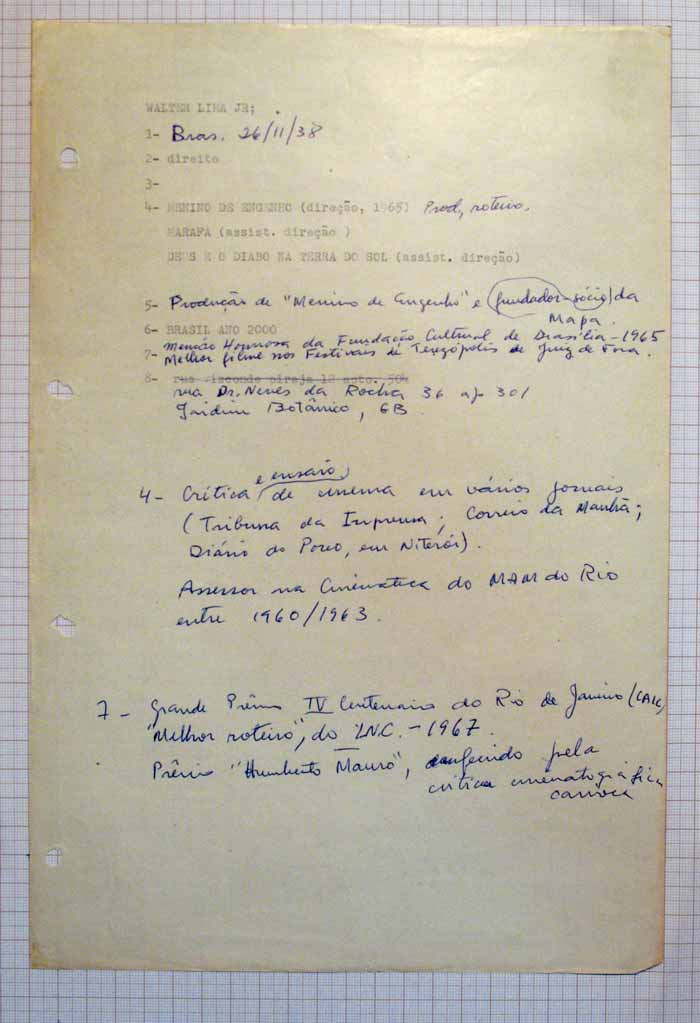 WALTER LIMA JR;
1- Bras. 26/11/38
2- direito
3-
4- MENINO DE ENGENHO (direção, 1965) Prod, roteiro.
MARAFA (assist. direção )
DEUS E O DIABO NA TERRA DO SOL (assist. direção)
5- Produção de "Menino de Engenho" e (fundador-sócio) da
Mapa.
6- BRASIL ANO 2000
Menção Honrosa da Fundação Cultural de Brasília - 1965
7- Melhor filme nos Festivais de Teresópolis de Juiz de Fora.
8- rua visconde piraja 12 apto. 504
rua Dr. Neves da Rocha 36 ap 301
Jardim Botânico, GB
e ensaio
4- Crítica de cinema em vários jornais
(Tribuna da Imprensa; Correio da Manhã;
Diário do Povo, em Niterói).
Assessor na Cinemateca do MAM do Rio
entre 1960/1963.
7- Grande Prêmio IV Centenario do Rio de Janeiro (CAIC)
"Melhor roteiro", do I.N.C. - 1967.
Prêmio "Humberto Mauro", conferido pela
crítica cinematográfica
carioca